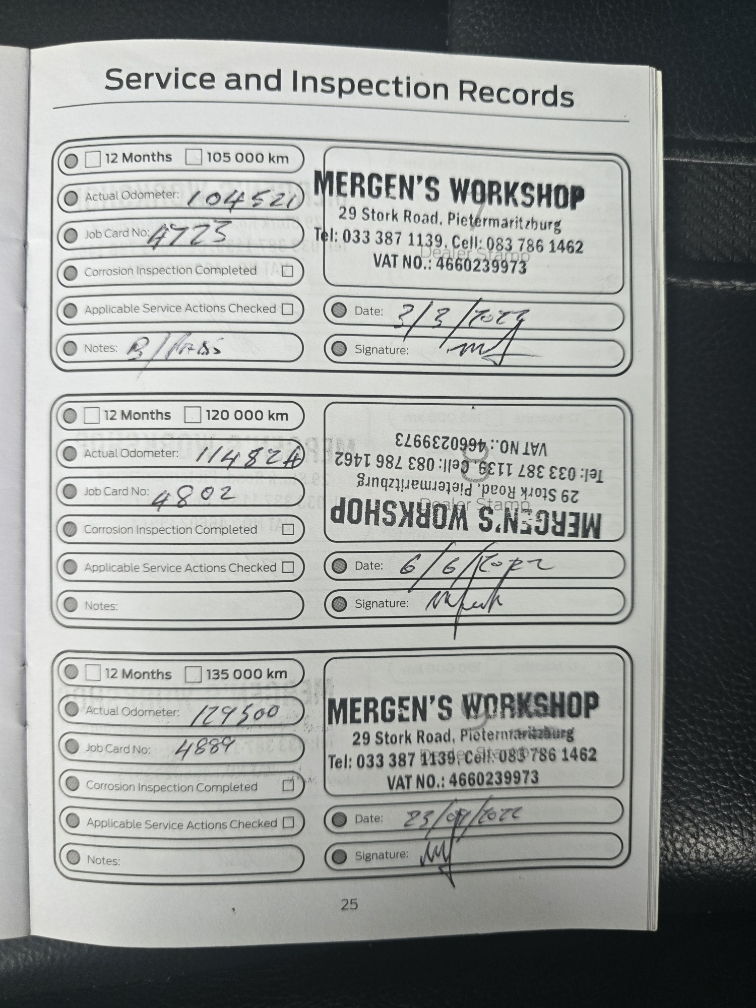 Service and Inspection Records
12 Months 105 000 km
Actual Odometer: 104521
Job Card No: 4723
Corrosion Inspection Completed
Applicable Service Actions Checked
Notes: B/
MERGEN'S WORKSHOP
29 Stork Road, Pietermaritzburg
Tel: 033 387 1139, Cell: 083 786 1462
VAT NO.: 4660239973
Dealer Stamp
Date: 3/3/
Signature:
12 Months 120 000 km
Actual Odometer:
Job Card No: 4802
Corrosion Inspection Completed
Applicable Service Actions Checked
Notes:
MERGEN'S WORKSHOP
29 Stork Road, Pietermaritzburg
Tel: 033 387 1139, Cell: 083 786 1462
VAT NO.: 4660239973
Dealer Stamp
Date: 6/6/2022
Signature:
12 Months 135 000 km
Actual Odometer: 129500
Job Card No: 4889
Corrosion Inspection Completed
Applicable Service Actions Checked
Notes:
MERGEN'S WORKSHOP
29 Stork Road, Pietermaritzburg
Tel: 033 387 1139, Cell: 083 786 1462
VAT NO.: 4660239973
Date: 23/09/2022
Signature:
25